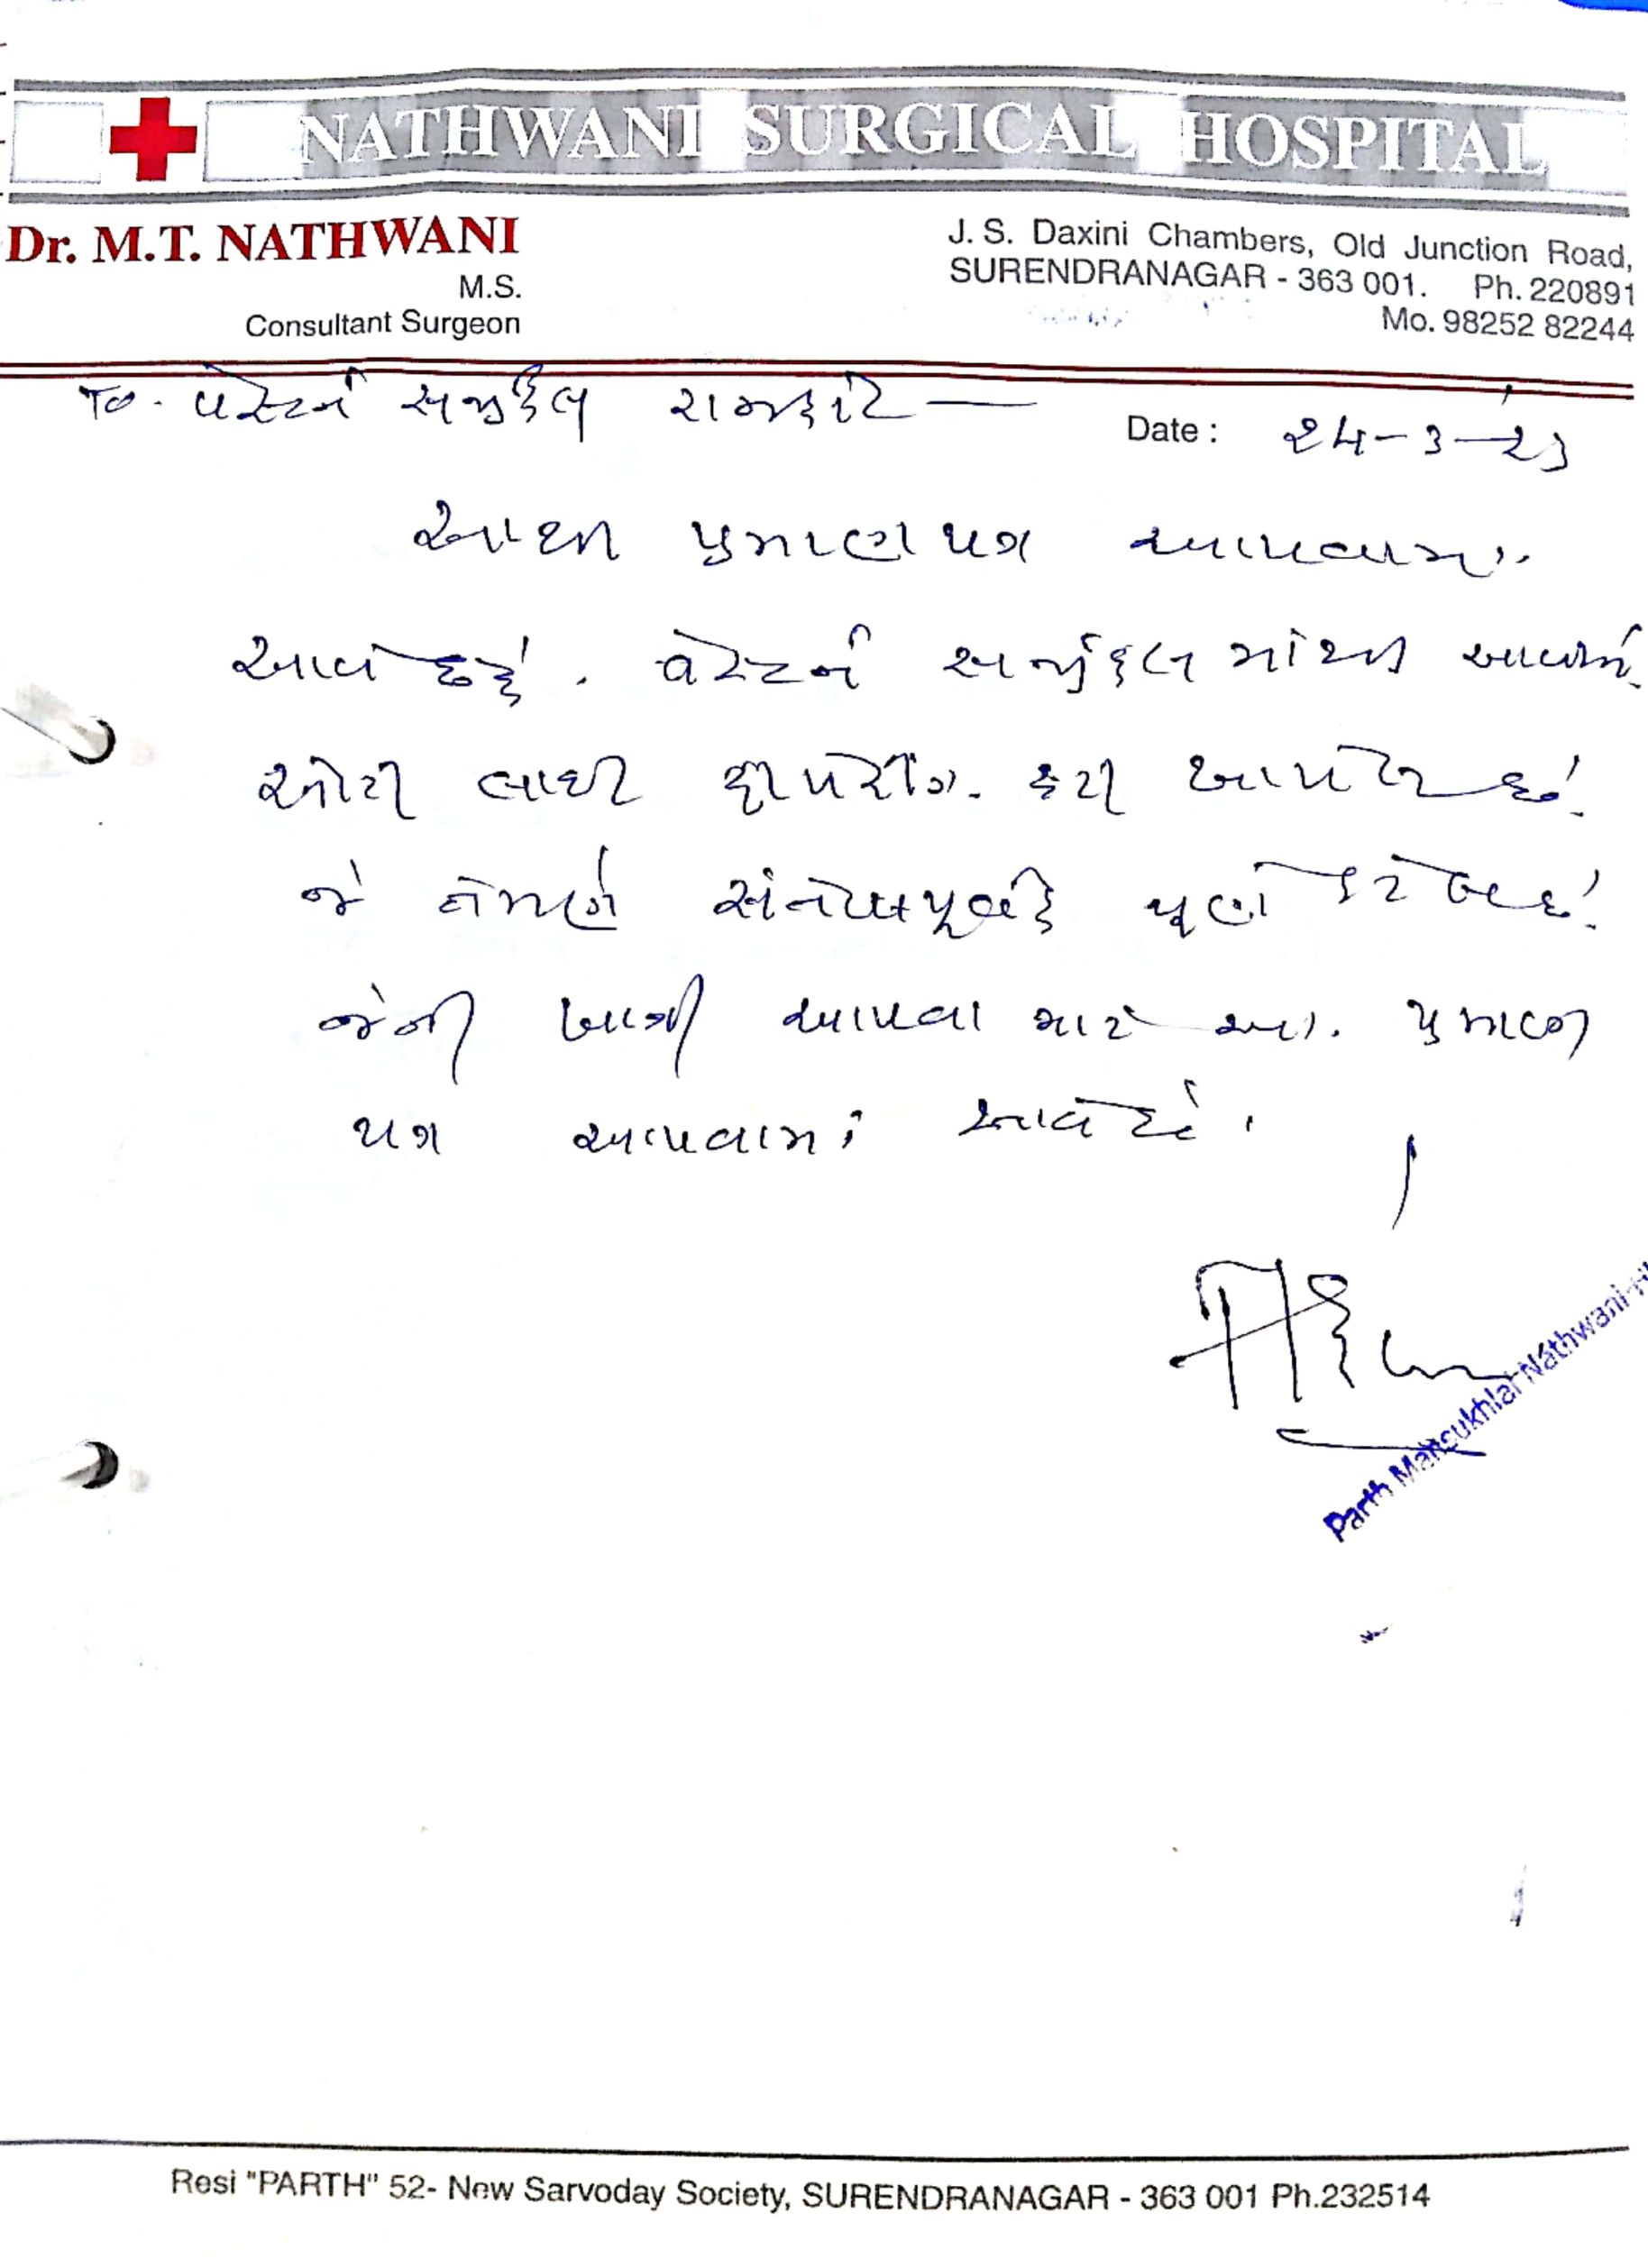 NATHWANI SURGICAL HOSPITAL
Dr. M.T. NATHWANI
M.S.
Consultant Surgeon
J. S. Daxini Chambers, Old Junction Road,
SURENDRANAGAR - 363 001. Ph. 220891
Mo. 98252 82244
To. વેસ્ટર્ન સર્જીકલ રાજકોટ —
Date : ૨૫-૩-૨૩
આથી પ્રમાણપત્ર આપવામાં
આવે છે કે . વેસ્ટર્ન સર્જીકલ માંથી અમોને
કરી આપેલ છે.
જે તેમણે સંતોષપૂર્વક પૂર્ણ કરેલ છે.
જેની ખાત્રી આપવા માટે આ પ્રમાણ
પત્ર આપવામાં આવે છે.
Parth Mansukhlal Nathwani
Resi "PARTH" 52- New Sarvoday Society, SURENDRANAGAR - 363 001 Ph.232514